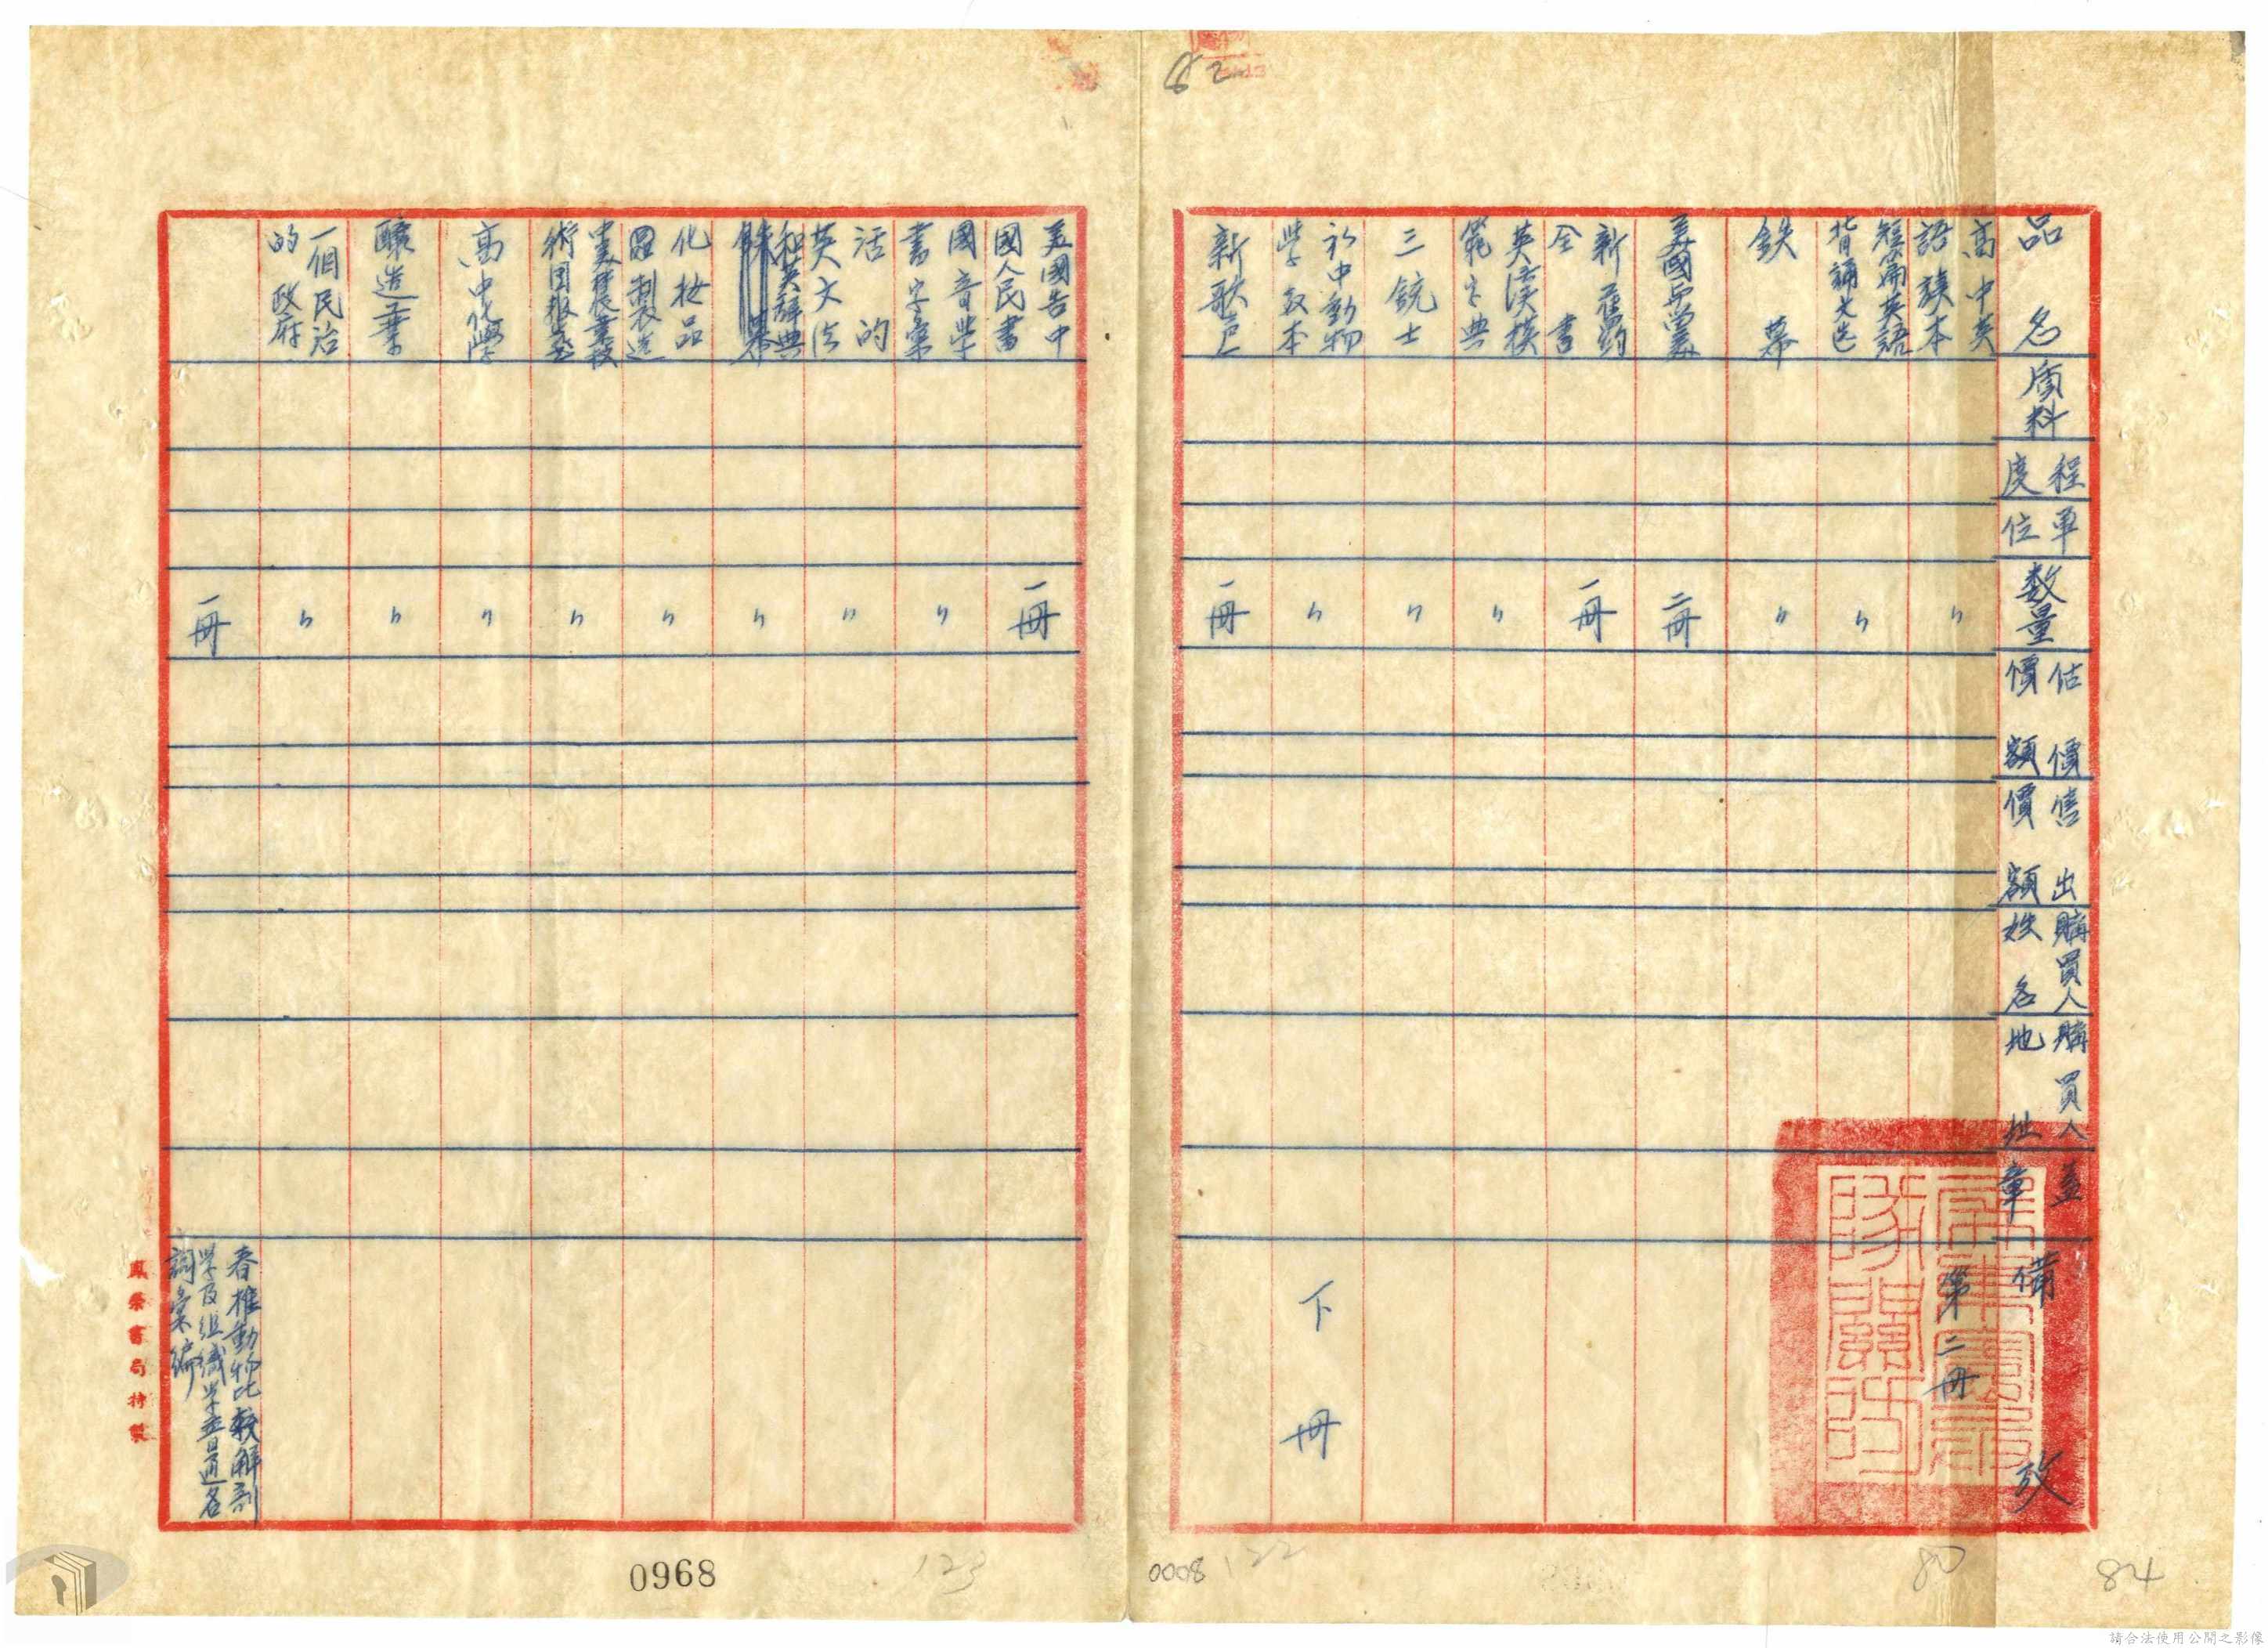 品名
質料
程度
單位
数量
估價價額
售出價額
購買人姓名
購買人地址
蓋章
備攷
高中英語讀本 〃 第二冊
短篇英語背誦文选 〃
鉄幕 〃
美國采風 二冊
新舊約全書 一冊
英漢模範字典 〃
三銃士 〃
初中動物学教本 〃 下冊
新歌 一冊
美國告中國人民書 一冊
國音学生字彙 〃
活的英文法 〃
和英辞典 〃
化妆品製造 〃
〃
高中化學 〃
釀造業 〃
一個民治的政府 〃
一冊
脊椎動物比較解剖学及組織学普通名詞彙編
鳳榮書局特製
62
0968
123
0008
122
80
84
請合法使用公開之影像